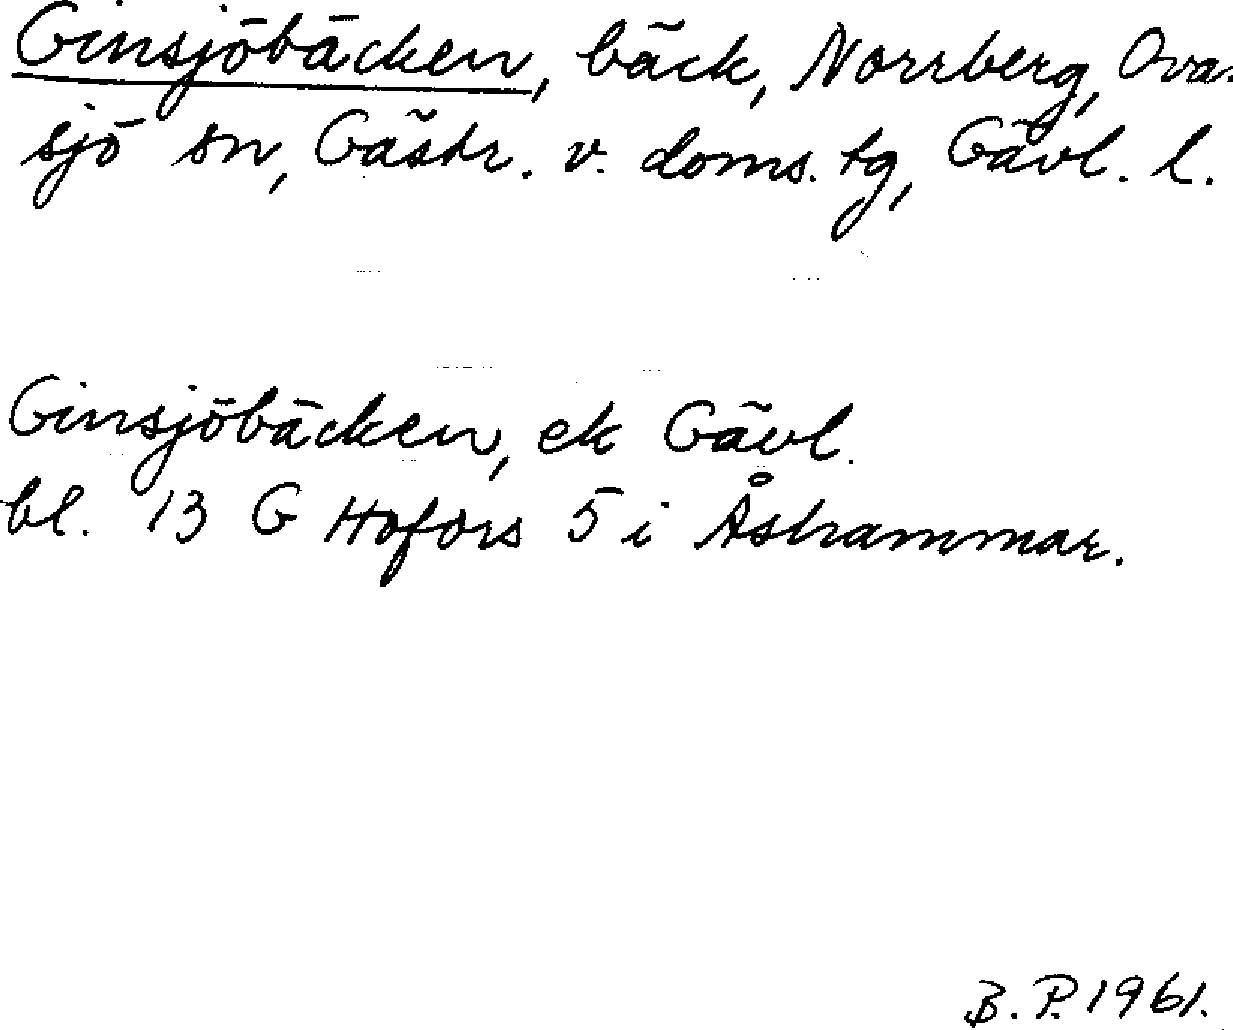 Ginsjöbäcken, bäck, Norrberg, Ova-
sjö sn, Gästr. v. doms. tg, Gävl. l.
Ginsjöbäcken, ek Gävl.
bl. 13 G Hofors 5 i Åshammar.
B. P. 1961.